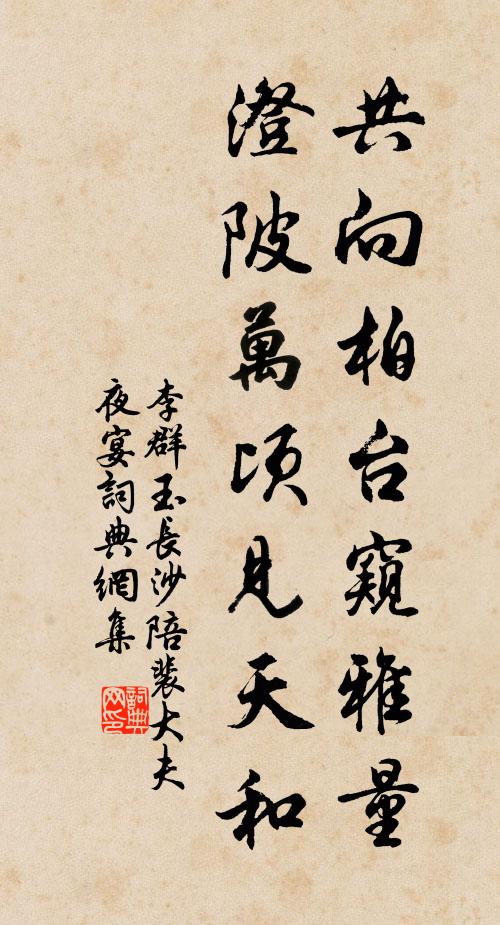 共向柏台窺雅量
澄陂萬頃見天和
李群玉長沙陪裴大夫
夜宴詞典網集
詞典
网印